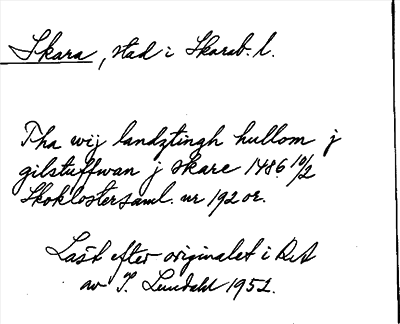 Skara, stad i Skarab. l.
Tha wij landztingh hullom j
gilstuffwan j skare 1486 10/2
Skoklostersaml. nr 192 or.
Läst efter originalet i RA
av I. Lundahl 1952.